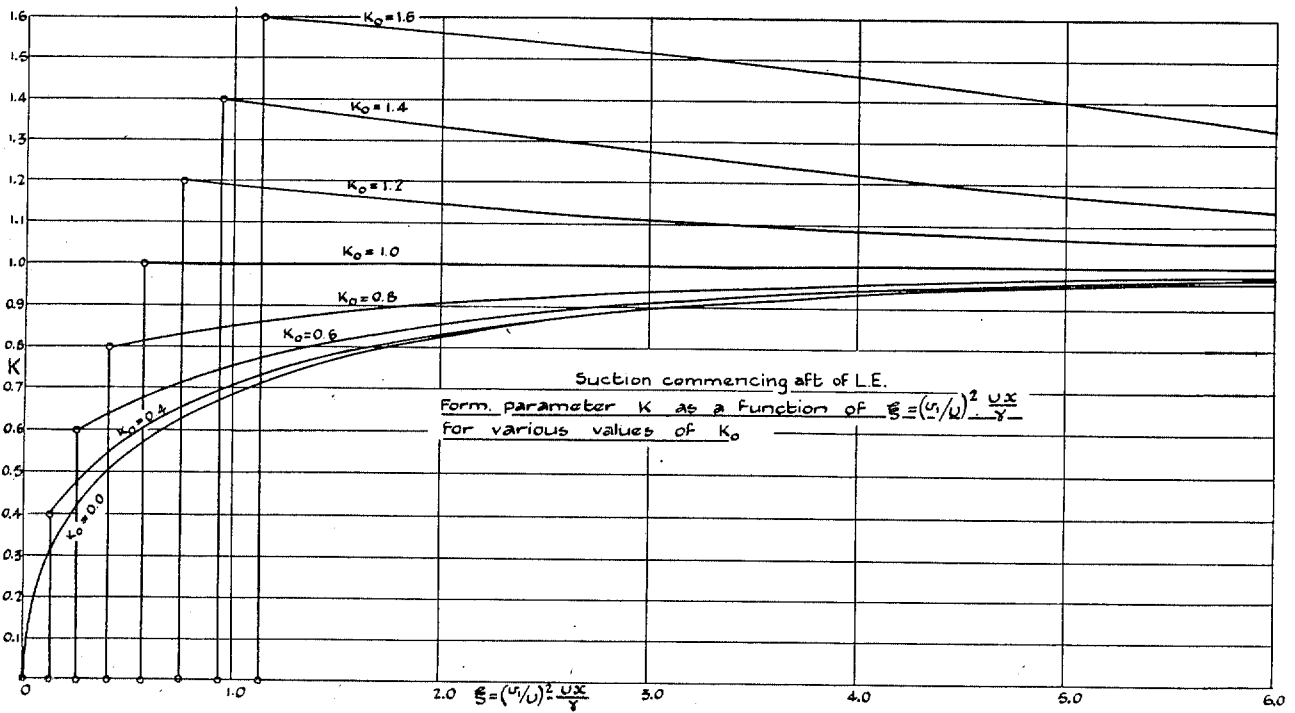 1.6
1.5
1.4
1.3
1.2
1.1
1.0
0.9
0.8
K
0.7
0.6
0.5
0.4
0.3
0.2
0.1
K₀=1.6
K₀=1.4
K₀=1.2
K₀=1.0
K₀=0.8
K₀=0.6
K₀=0.4
K₀=0.0
Suction commencing aft of L.E.
Form. parameter K as a function of ξ=(v₁/U)² Ux/γ
for various values of K₀
0 1.0 2.0 3.0 4.0 5.0 6.0
ξ=(v₁/U)² Ux/γ